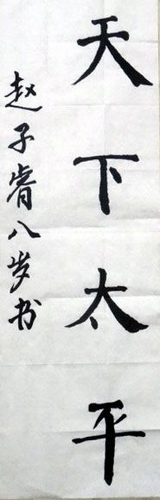 天下太平
赵子睿八岁书